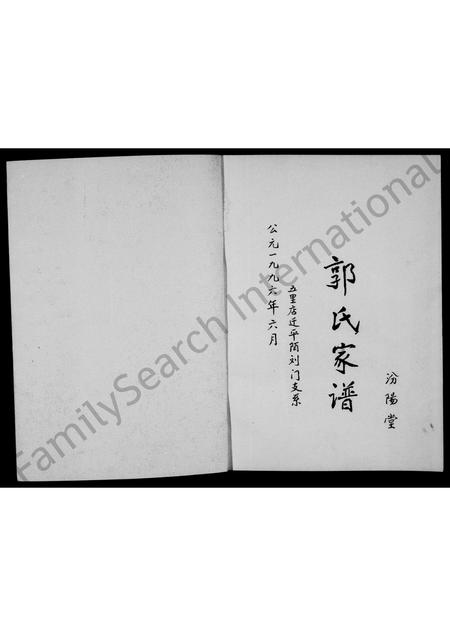 汾陽堂
郭氏家谱
五里店迁平陌刘门支系
公元一九九六年六月
FamilySearch International